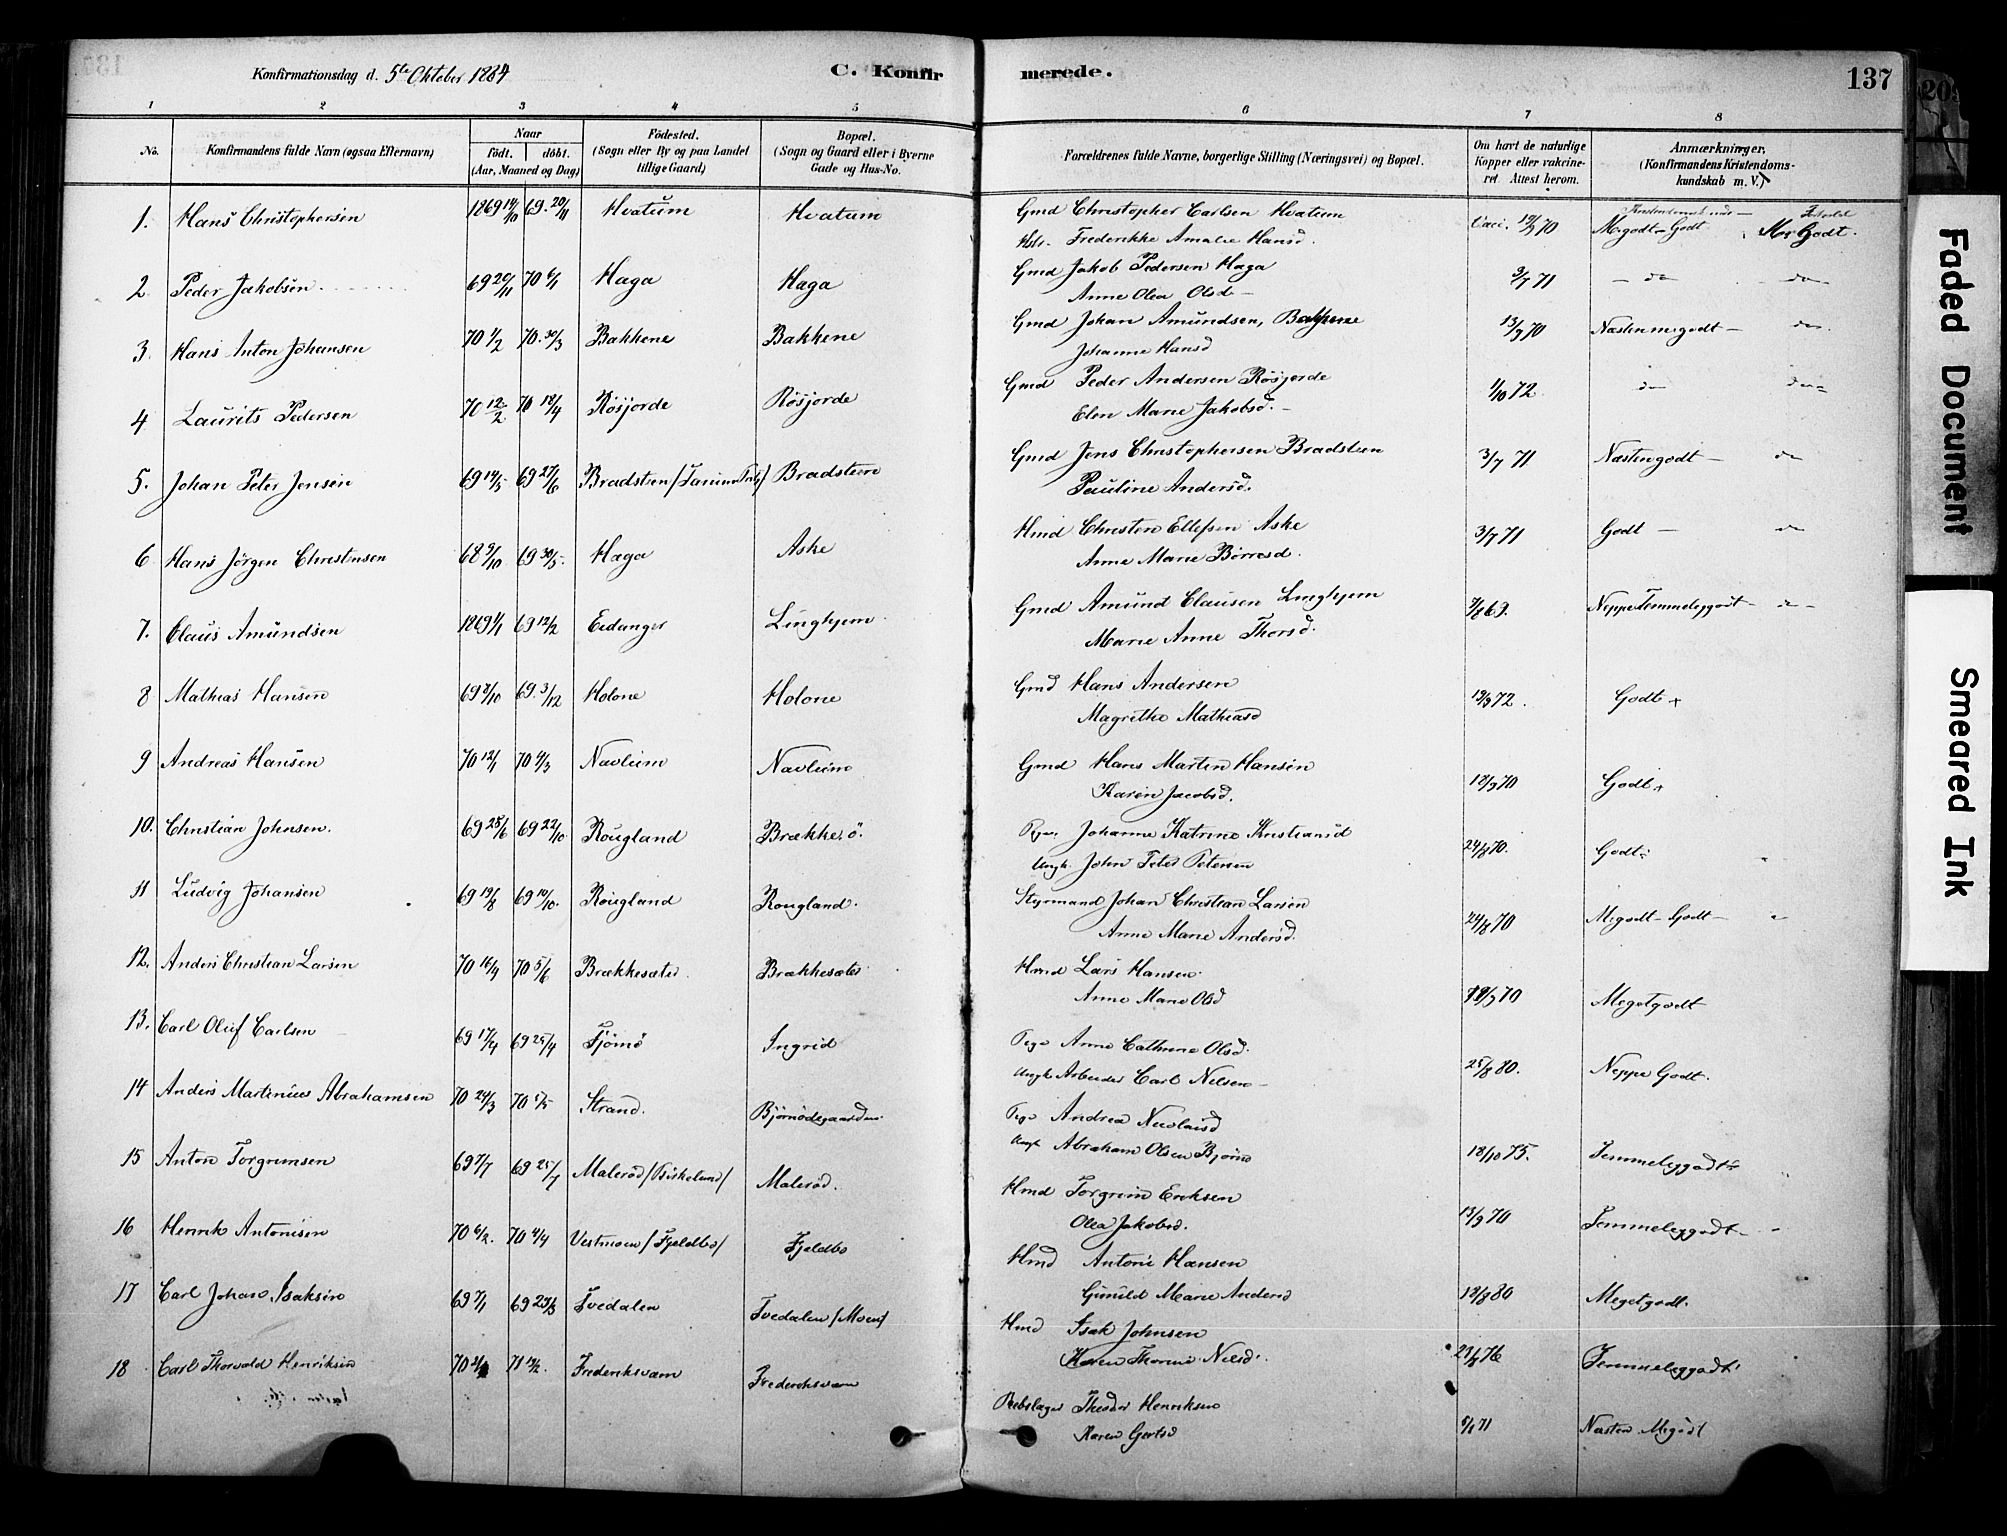 Konfirmationsdag d. 5te Oktober 1884 C. Konfirmerede. 137
1 2 3 4 5 6 7 8
No. Konfirmandens fulde Navn (ogsaa Efternavn) Naar födt. döbt. (Aar, Maaned og Dag) Födested. (Sogn eller By og paa Landet tillige Gaard) Bopæl. (Sogn og Gaard eller i Byerne Gade og Hus-No. Forældrenes fulde Navne, borgerlige Stilling (Næringsvei) og Bopæl. Om havt de naturlige Kopper eller vakcineret. Attest herom. Anmærkninger, (Konfirmandens Kristendomskundskab m. V.)
1. Hans Christophersen 1869 14/10 69. 20/11 Hvatum Hvatum Gmd Christopher Carlsen Hvatum Vacc. 19/9 70 Megodt - Godt Mor Godt.
Hstr. Frederikke Amalie Hansd.
2 Peder Jakobsen 69 20/11 70 6/1 Haga Haga Gmd Jakob Pedersen Haga 3/7 71 - do - do -
Anne Olea Olsd -
3. Hans Anton Johansen 70 1/2 70. 30/3 Bakkene Bakkene Gmd Johan Amundsen, Bakkene 13/9 70 Næsten megodt - do.
Johanne Hansd
4 Laurits Pedersen 70 12/2 70 18/4 Rösjorde Rösjorde Gmd Peder Andersen Rösjorde 1/10 72 do do -
Elen Marie Jakobsd. -
5. Johan Peter Jensen 69 14/5 69 27/6 Bradsteen /Tanum / Bradsteen Gmd Jens Christophersen Bradsteen 3/7 71 Næsten godt - do
Pauline Andersd.
6 Hans Jörgen Christensen 68 9/10 69 30/5 Haga Aske Hmd Christen Ellefsen Aske 3/7 71 Godt - do
Anne Marie Börresd.
7. Claus Amundsen 1869 1/1 69 12/2 Eidanger Linghjem Gmd Amund Clausen Linghjem 9/8 69. Neppe Temmeleggodt - do -
Marie Anne Thorsd.
8 Mathias Hansen 69 8/10 69. 3/12 Holone Holone Gmd Hans Andersen 19/9 72. Godt +
Magrethe Mathiasd
9 Andreas Hansen 70 12/1 70 4/3 Navleim Navleim Gmd Hans Martin Hansen 12/9 70 Godt +
Karen Jacobsd.
10. Christian Johnsen. 69 28/6 69 22/10 Rougland Brække, ö. Pige Johanne Katrine Kristiansd 24/8 70. Godt
Ungk John Peter Petersen
11 Ludvig Johansen 69 19/8 69 10/10. Rougland Rougland. Styrmand Johan Christian Larsen 24/8 70 Megodt - Godt - "
Anne Marie Andersd.
12. Anders Christian Larsen 70 16/4 70 5/6 Brækkesæter Brækkesæter Hmd Lars Hansen. 19/9 70 Megetgodt
Anne Marie Olsd
13. Carl Oluf Carlsen 69 17/4 69 25/4 Tjömö Ingrid Pige Anne Cathrine Olsd. 25/8 80. Neppe Godt.
Ungk Arbeider Carl Nilsen -
14 Anders Martinius Abrahamsen 70 24/3 70 1/5 Strand. Björnödegaarden Pige Andrea Nicolaisd 18/10 75. Temmeleggodt
Ungk Abraham Olsen Björnö
15 Anton Torgrimsen 69 7/7 69 25/7 Maleröd /Birkelund/ Malerød. Hmd Torgrim Eriksen 13/9 70 Temmeleggodt -
Olea Jakobsd.
16 Henrik Antonisen 70 6/2. 70 4/4 Vestmoen /Fjeldbo/ Fjeldbo Hmd Antoni Hansen 12/8 80 Megetgodt.
Gunild Marie Andersd
17 Carl Johan Isaksen 69 7/1 69 29/3 Tvedalen Tvedalen /Moen/ Hmd Isak Johnsen 27/8 76 Temmeleggodt.
Karen Thorine Nilsd.
18 Carl Thorvald Henriksen 71 12/2. Frederiksværn Frederiksværn Rebslager Theodor Henriksen 6/1 71 Næsten Megodt
Karen Gertsd
Faded Document
Smeared Ink